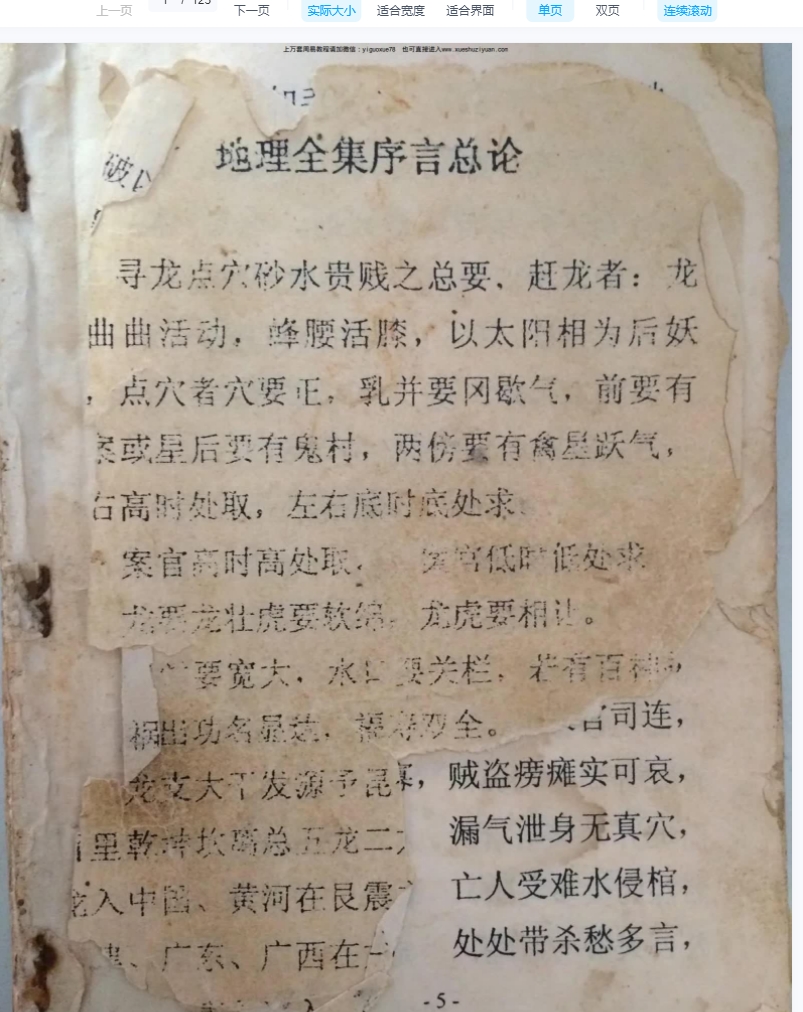 上一页 1 / 123 下一页 实际大小 适合宽度 适合界面 单页 双页 连续滚动
上万套周易教程请加微信：yiguoxue78 也可直接进入www.xueshuziyuan.com
破
地理全集序言总论
寻龙点穴砂水贵贱之总要，赶龙者：龙
曲曲活动，蜂腰活膝，以太阳相为后妖
，点穴者穴要正，乳并要冈歇气，前要有
案或星后要有鬼村，两傍要有禽星跃气，
右高时处取，左右底时底处求
案官高时高处取， 案官低时低处求
龙要龙壮虎要软绵，龙虎要相让。
要宽大，水口要关栏，若有百
祸出功名显达，福寿双全。 官司连，
龙支大干发源予昆 ，贼盗痨瘫实可哀，
里乾坤坎离总五龙二 漏气泄身无真穴，
龙入中国、黄河在艮震 亡人受难水侵棺，
、广东、广西在 处处带杀愁多言，
入
-5-